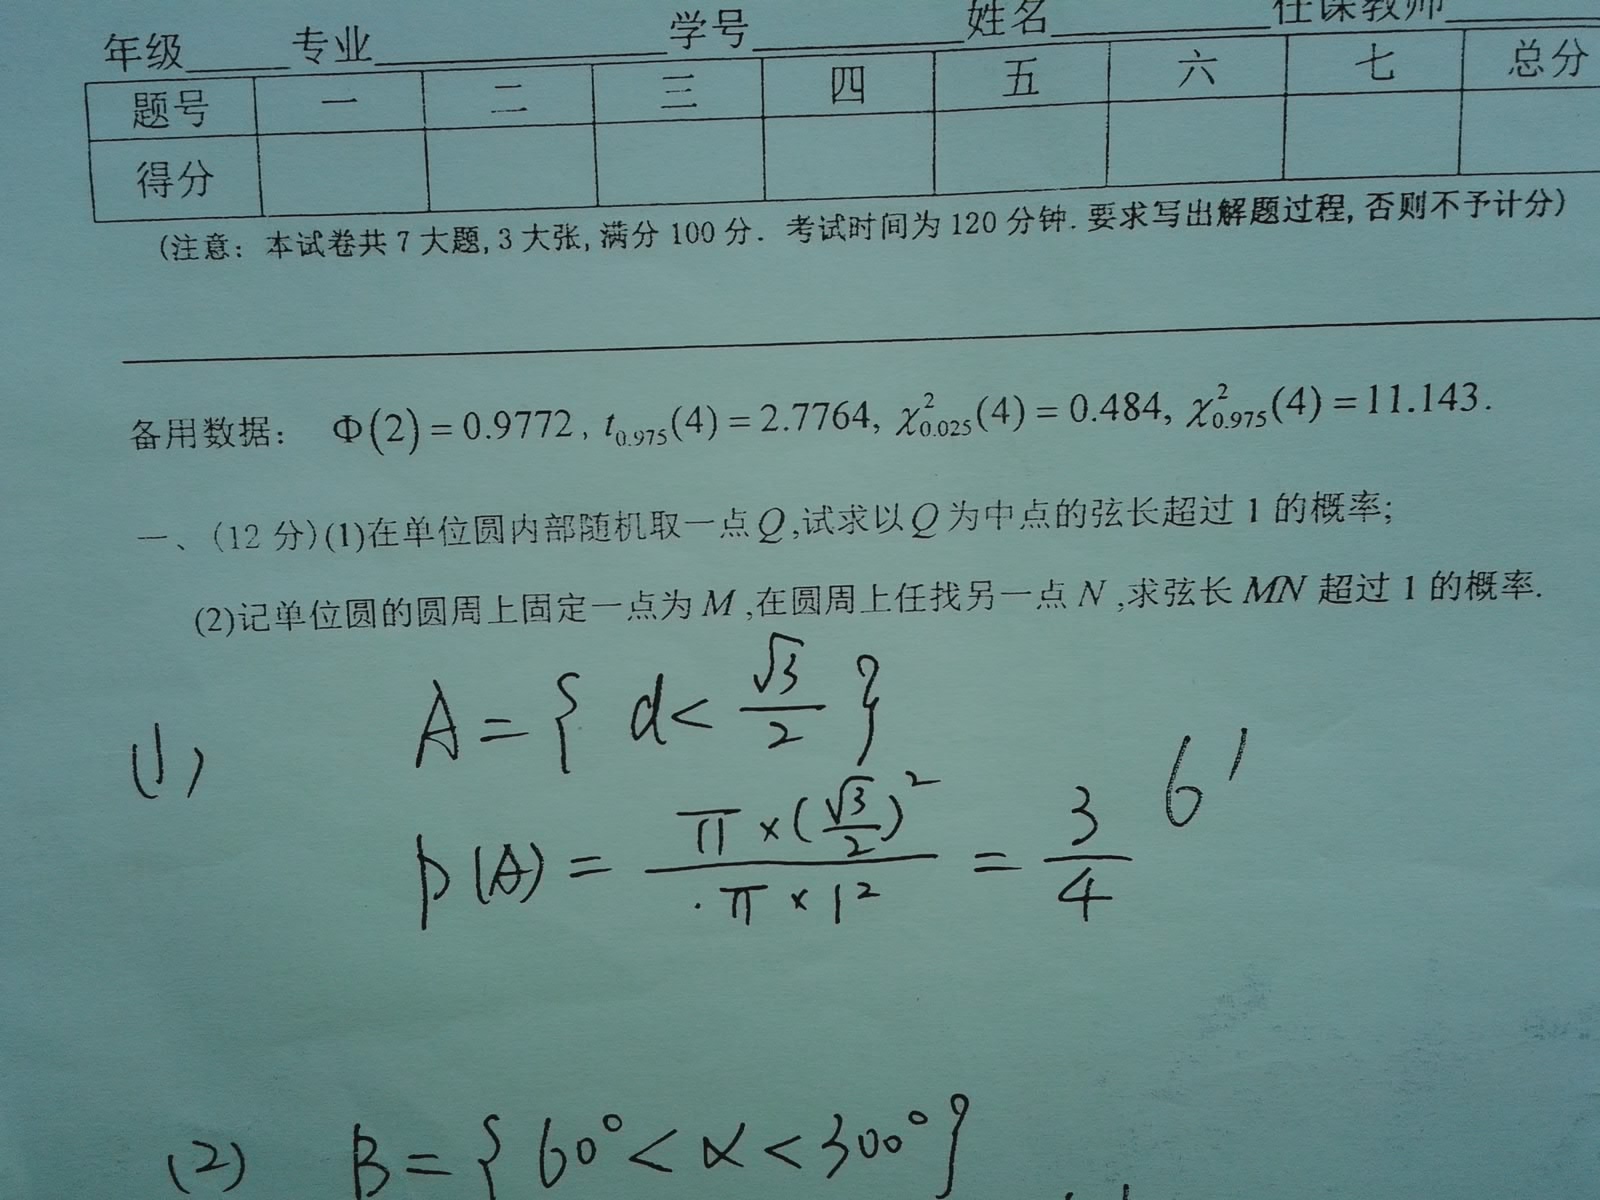 年级 专业 学号 姓名 任课教师
题号 一 二 三 四 五 六 七 总分
得分
(注意: 本试卷共 7 大题, 3 大张, 满分 100 分. 考试时间为 120 分钟. 要求写出解题过程, 否则不予计分)
备用数据: Φ(2) = 0.9772, t₀.₉₇₅(4) = 2.7764, χ²₀.₀₂₅(4) = 0.484, χ²₀.₉₇₅(4) = 11.143.
一、(12 分)(1)在单位圆内部随机取一点Q,试求以Q为中点的弦长超过 1 的概率;
(2)记单位圆的圆周上固定一点为M,在圆周上任找另一点N,求弦长 MN 超过 1 的概率.
(1) A = { d < √3/2 }
P(A) = π×(√3/2)² / π×1² = 3/4 6'
(2) B = { 60° < α < 300° }